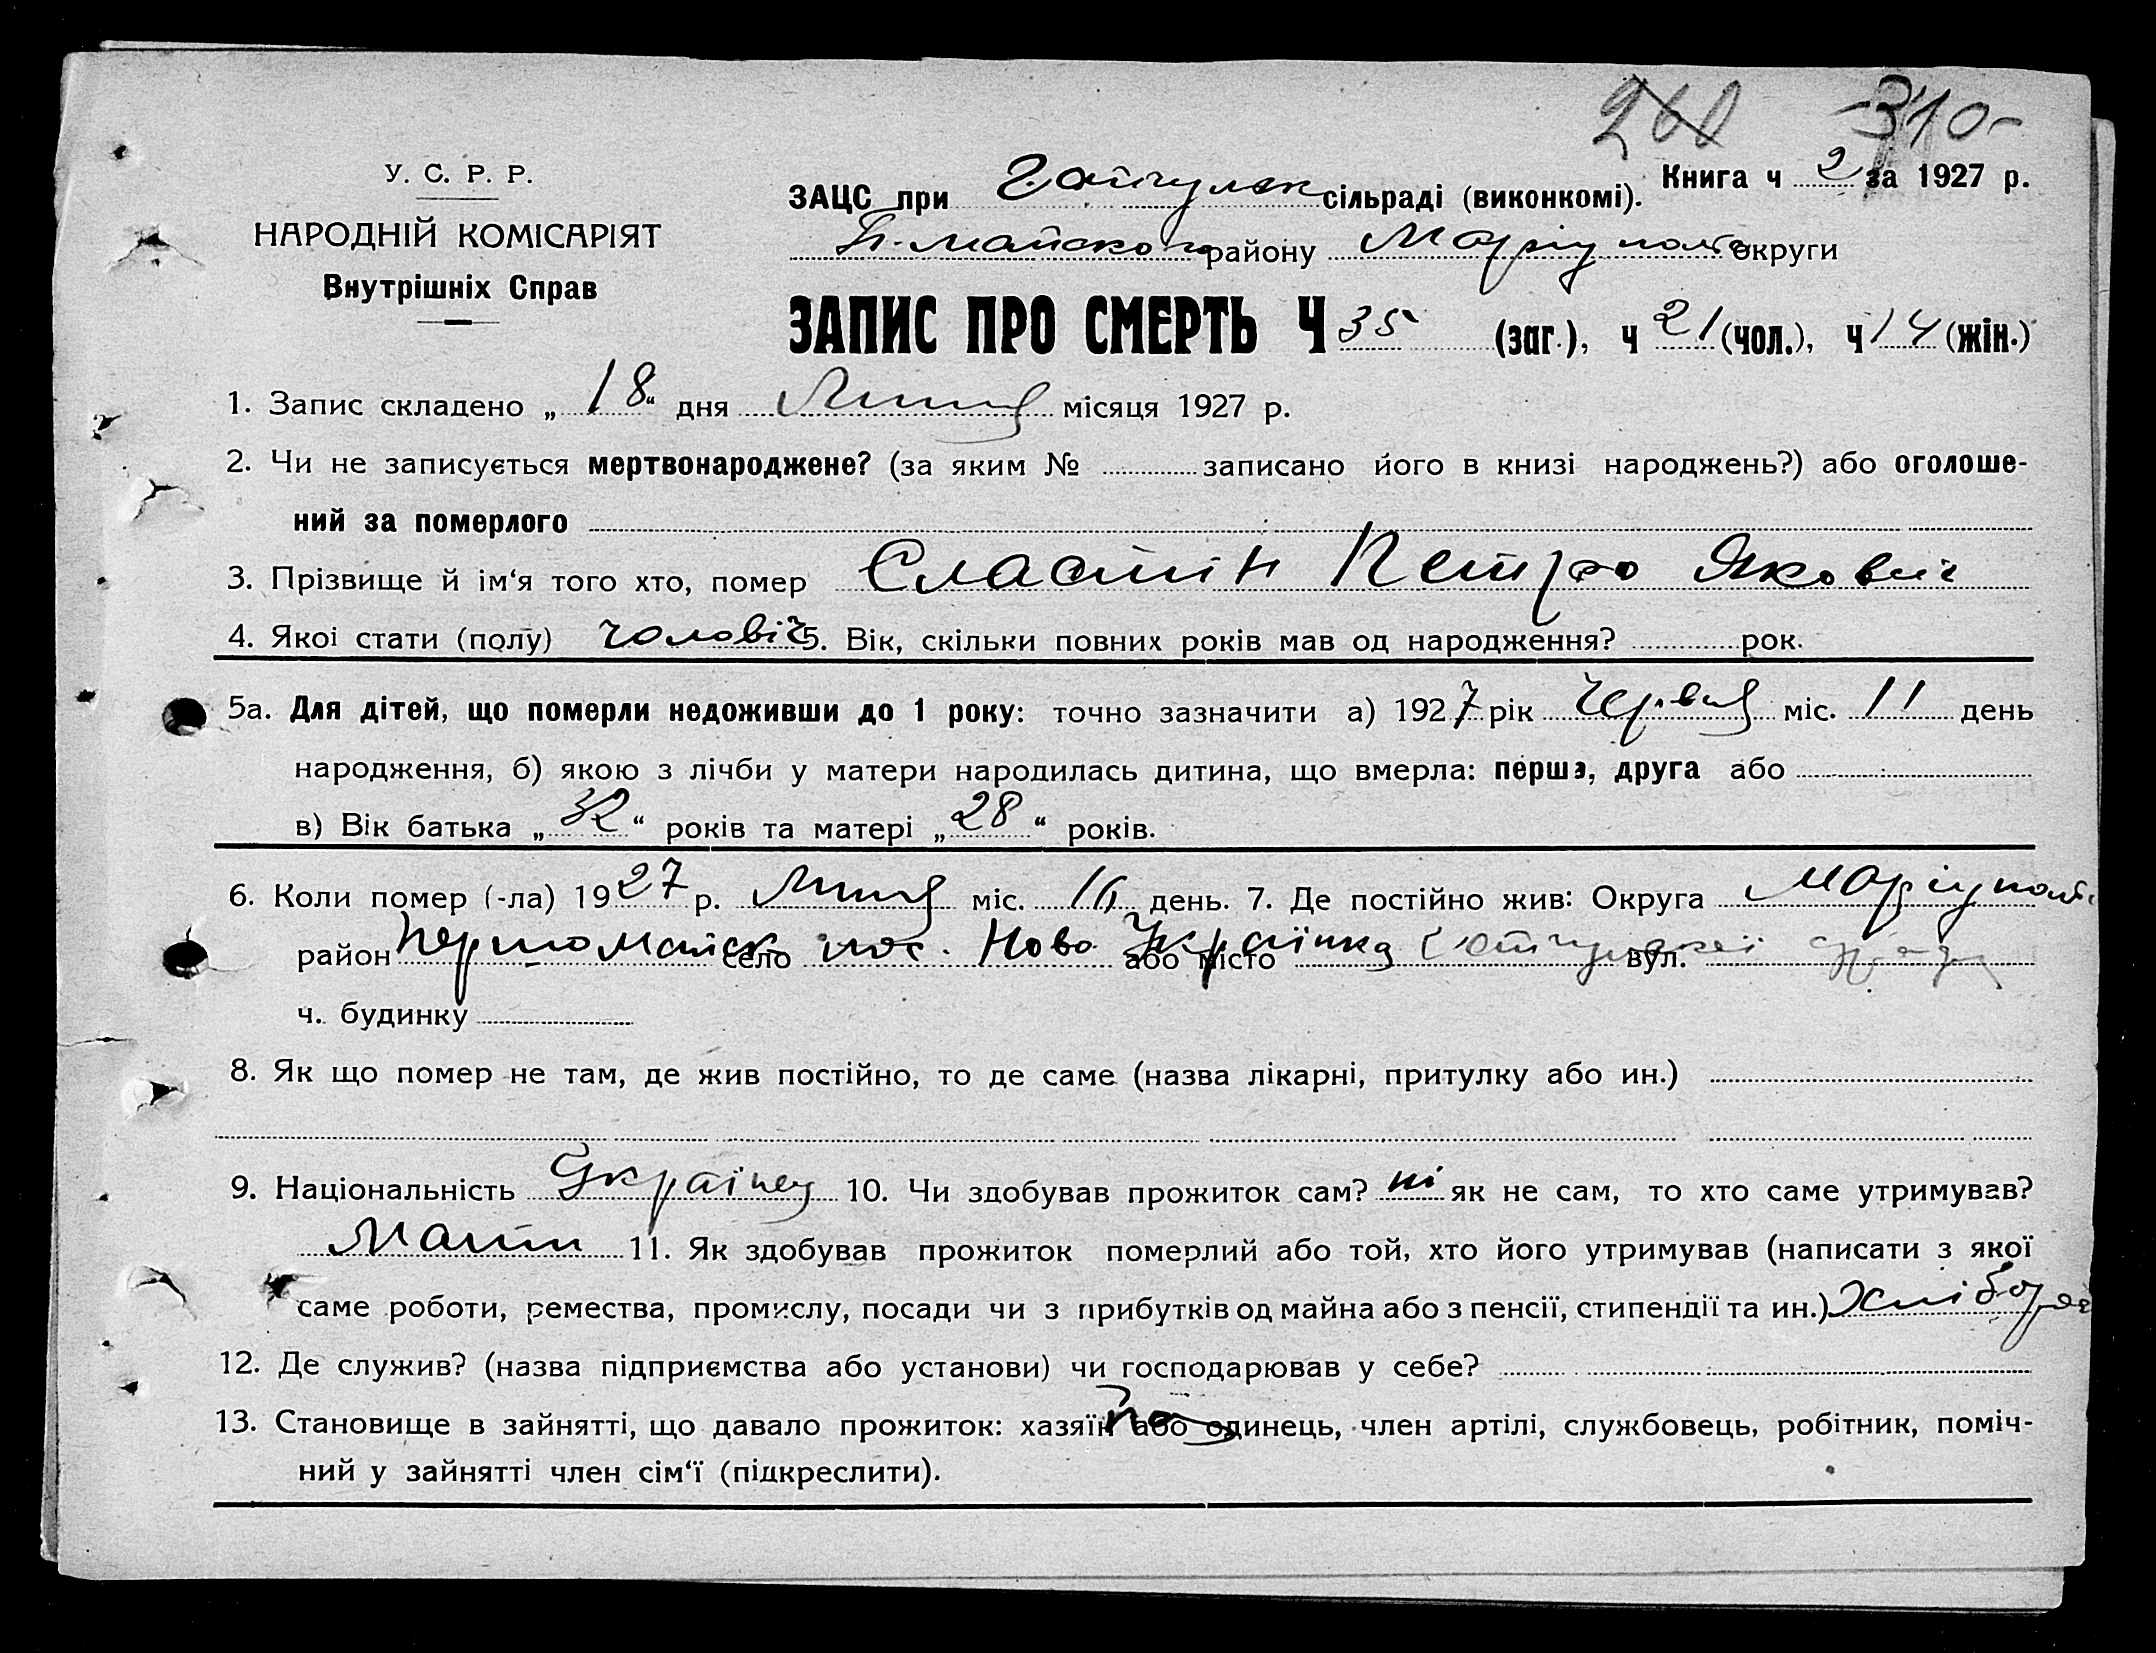 260 -310-
У. С. Р. Р.
НАРОДНІЙ КОМІСАРІЯТ
Внутрішніх Справ
Книга ч 2 за 1927 р.
ЗАЦС при Гайчулск сільраді (виконкомі).
П-майского району Маріупольс округи
ЗАПИС ПРО СМЕРТЬ Ч 35 (заг.), ч 21 (чол.), ч 14 (жін.)
1. Запис складено „ 18 “ дня Липця місяця 1927 р.
2. Чи не записується мертвонароджене? (за яким № записано його в книзі народжень?) або оголоше-
ний за померлого
3. Прізвище й ім‘я того хто, помер Сластин Петро Якович
4. Якоі стати (полу) чоловіч 5. Вік, скільки повних років мав од народження? рок.
5а. Для дітей, що померли недоживши до 1 року: точно зазначити а) 1927 рік Червця міс. 11 день
народження, б) якою з лічби у матери народилась дитина, що вмерла: перша, друга або
в) Вік батька „ 32 “ років та матері „ 28 “ років.
6. Коли помер (-ла) 1927 р. Липця міс. 16 день. 7. Де постійно жив: Округа Маріупольс
район Першомайск село пос. Ново Українка або місто вул.
ч. будинку
8. Як що помер не там, де жив постійно, то де саме (назва лікарні, притулку або ин.)
9. Національність Українец 10. Чи здобував прожиток сам? ні як не сам, то хто саме утримував?
Мати 11. Як здобував прожиток померлий або той, хто його утримував (написати з якої
саме роботи, ремества, промислу, посади чи з прибутків од майна або з пенсії, стипендії та ин.) Хлібороб
12. Де служив? (назва підприємства або установи) чи господарював у себе?
13. Становище в зайнятті, що давало прожиток: хазяїн або одинець, член артілі, службовець, робітник, поміч-
ний у зайнятті член сім‘ї (підкреслити).